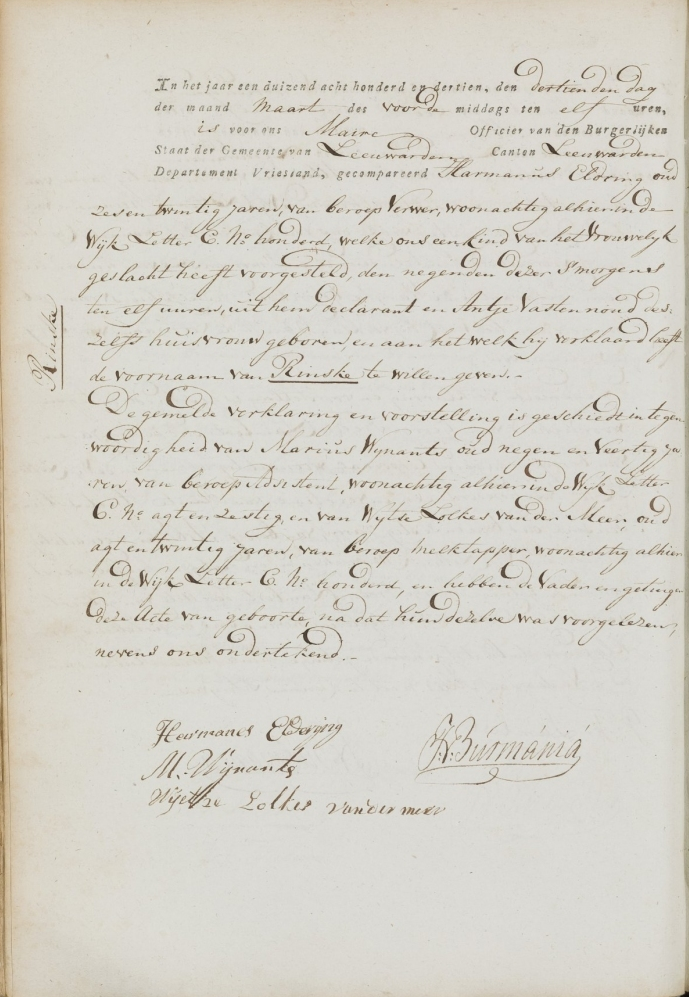 In het jaar een duizend acht honderd en dertien, den dertienden dag
der maand Maart des voorde middags ten elf uren,
is voor ons Maire Officier van den Burgerlijken
Staat der Gemeente van Leeuwarden Canton Leeuwarden
Departement Vriesland, gecompareerd Harmanus Eldring oud
zes en twintig jaren, van beroep Verwer, woonachtig alhier in de
Wijk Letter C. No honderd, welke ons een kind van het Vrouwelijk
geslacht heeft voorgesteld, den negenden dezer s'morgens
ten elf uuren, uit hem declarant en Antje Vaston noud des:
zelfs huisvrouw geboren, en aan het welk hij verklaard heeft
de voornaam van Rinske te willen geven.-
Rinske
De gemelde verklaring en voorstelling is geschiedt in tegen
woordigheid van Marius Wijnants oud negen en Veertig ja
ren, van beroep Adsistent, woonachtig alhier in de Wijk Letter
C. No agt en zestig, en van Wijtse Lolkes van der Meer, oud
agt en twintig jaren, van beroep melktapper, woonachtig alhier
in de Wijk Letter C. No honderd, en hebben de Vader en getuigen
deze Acte van geboorte, na dat hun dezelve was voorgelezen,
nevens ons ondertekend.-
Harmanes
M. Wijnants
Lolkes van der meer
Burmania